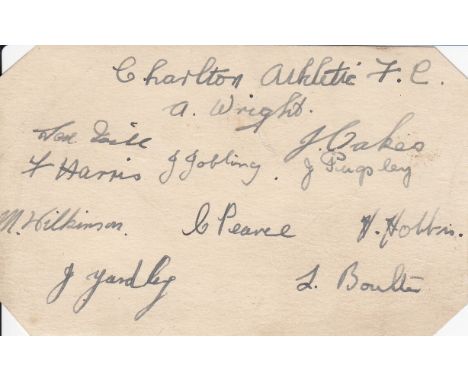 Charlton Athletic F.C.
A. Wright.
J Oakes
F Harris J Jobling J Pugsley
M. Wilkinson. C Pearce H. Hobbis.
J Yardley L. Boulter